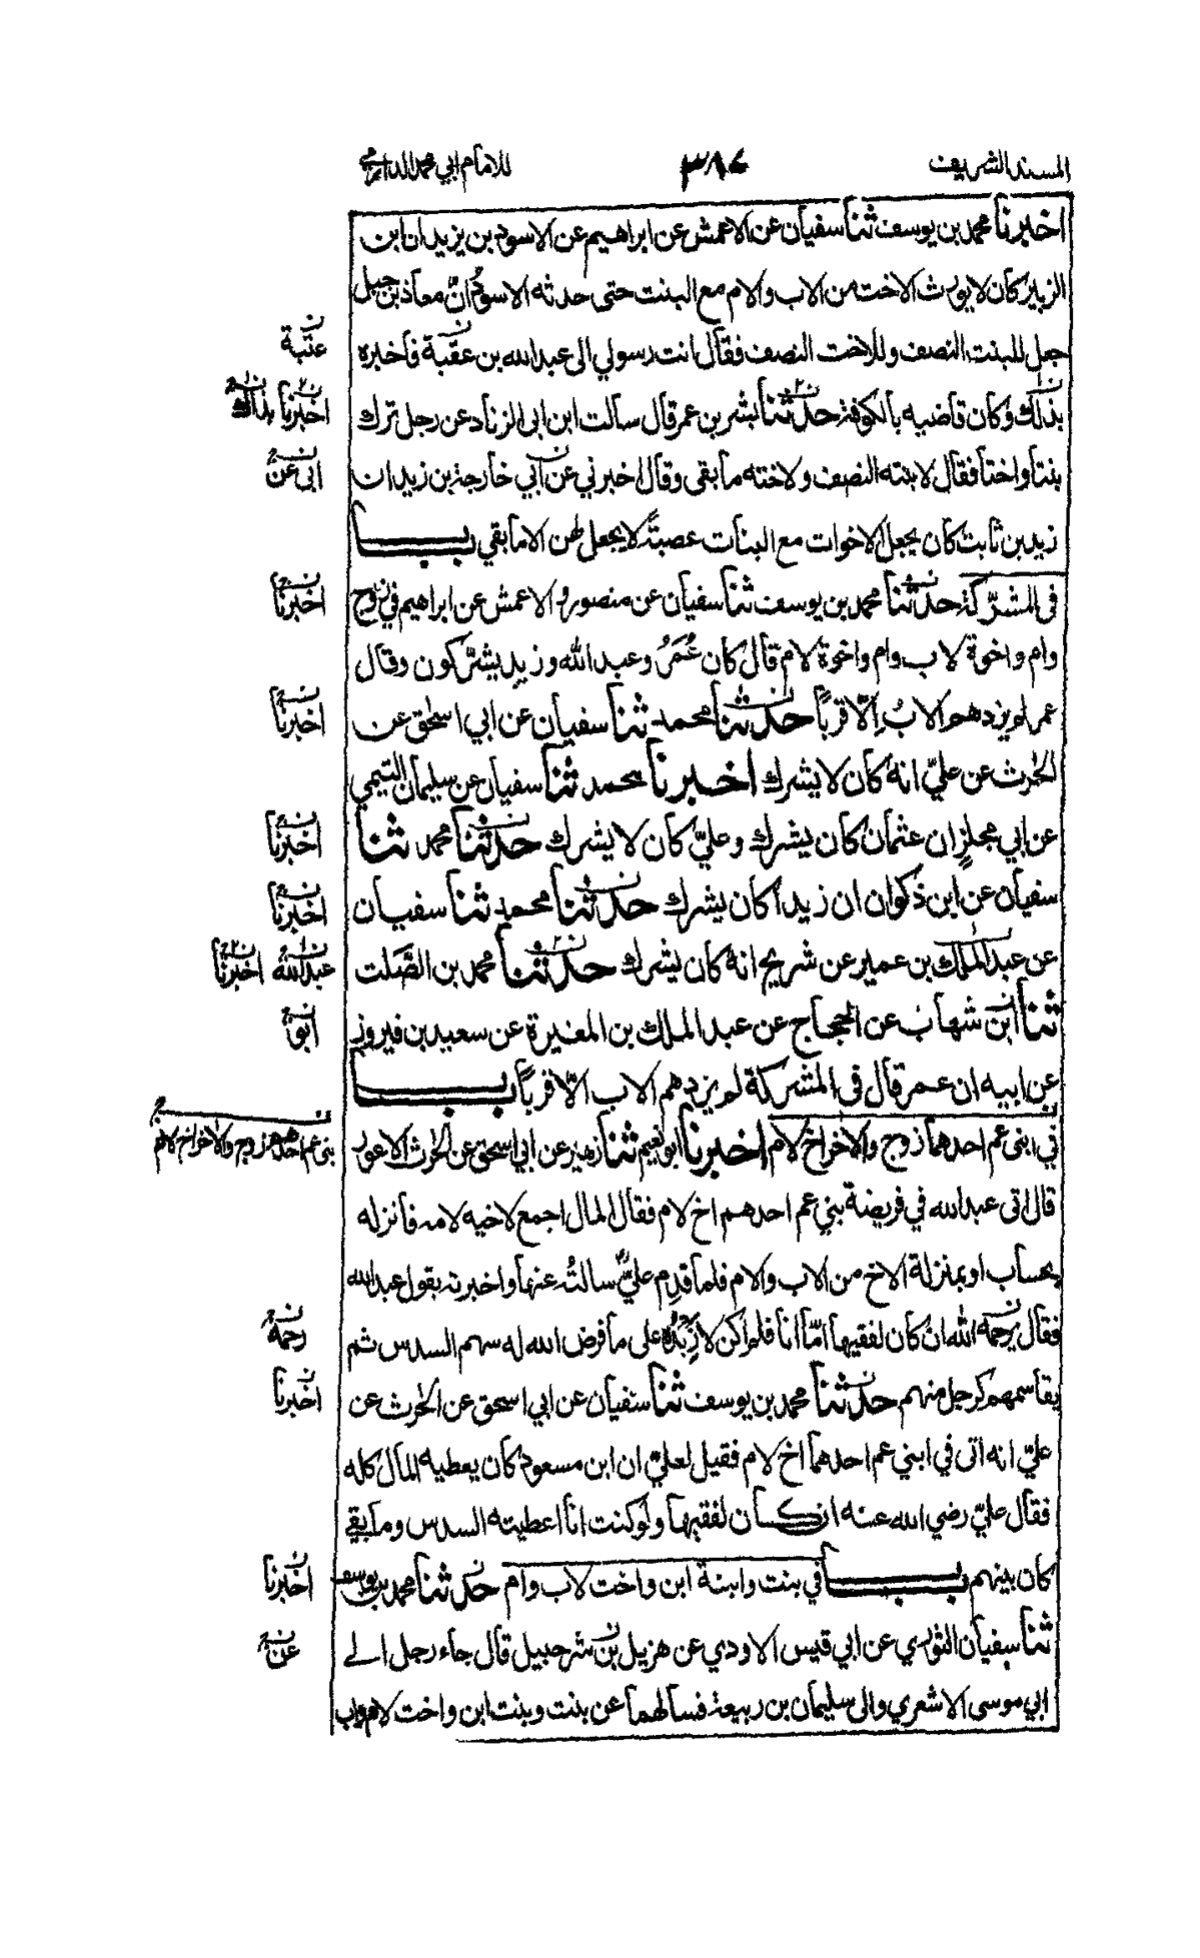 المسند الشريف
٣٨٤
للامام ابي محمد الدارمي
اخبرنا محمد بن يوسف ثنا سفيان عن الاعمش عن ابراهيم عن الاسود بن يزيد ان ابن
الزبير كان لا يورث الاخت من الاب والام مع البنت حتى حدثه الاسود ان معاذ بن جبل
جعل للبنت النصف وللاخت النصف فقال انت رسولي الى عبد الله بن عقبة فاخبره
عتبة
بذلك وكان قاضيه بالكوفة حدثنا بشر بن عمر قال سالت ابن ابى الزناد عن رجل ترك
اخبرنا بذاك
بنتا واختا فقال لابنته النصف ولاخته ما بقى وقال اخبرني عن ابي خارجة بن زيد ان
ابى عن
زيد بن ثابت كان يجعل الاخوات مع البنات عصبة لا يجعل لهن الا ما بقي باب
فى المشركة حدثنا محمد بن يوسف ثنا سفيان عن منصور والاعمش عن ابراهيم في زوج
اخبرنا
وام واخوة لاب وام واخوة لام قال كان عُمَرُ وعبد الله وزيد يشرّكون وقال
عمر لم يزدهم الابُ اِلّا قربًا حدثنا محمد ثنا سفيان عن ابي اسحق عن
اخبرنا
الحٰرث عن عليّ انه كان لا يشرك اخبرنا محمد ثنا سفيان عن سليمان التيمي
عن ابي مجلز ان عثمان كان يشرك وعليّ كان لا يشرك حدثنا محمد ثنا
اخبرنا
سفيان عن ابن ذكوان ان زيدا كان يشرك حدثنا محمد ثنا سفيان
اخبرنا
عن عبد الملك بن عمير عن شريح انه كان يشرك حدثنا محمد بن الصَّلت
عبد الله اخبرنا
ثنا ابن شهاب عن الحجاج عن عبد الملك بن المغيرة عن سعيد بن فيروز
ابو
عن ابيه ان عمر قال فى المشركة لم يزدهم الاب الّا قربًا باب
في ابنى عم احدهما زوج والاخر اخ لام اخبرنا ابو نعيم ثنا زهير عن ابي اسحق عن الحٰرث الاعور
بنى عم احدهم زوج والاخر اخ لام
قال اتى عبد الله في فريضة بني عم احدهم اخ لام فقال المال اجمع لاخيه لامه فانزله
بحساب او بمنزلة الاخ من الاب والام فلما قدم عليٌّ سالتُه عنها واخبرته بقول عبد الله
فقال يرحمه الله ان كان لفقيها امّا انا فلم اكن لازيده على ما فرض الله له سهم السدس ثم
رحمه
يقاسمهم كرجل منهم حدثنا محمد بن يوسف ثنا سفيان عن ابي اسحق عن الحٰرث عن
اخبرنا
عليّ انه اتى في ابني عم احدهما اخ لام فقيل لعليّ ان ابن مسعود كان يعطيه المال كله
فقال عليّ رضي الله عنه ان كان لفقيها ولو كنت انا اعطيته السدس وما بقي
كان بينهم باب في بنت وابنة ابن واخت لاب وام حدثنا محمد بن يوسف
اخبرنا
ثنا سفيان الثوري عن ابي قيس الاودي عن هزيل بن شرحبيل قال جاء رجل الى
عن
ابي موسى الاشعري والى سليمان بن ربيعة فسالهما عن بنت وبنت ابن واخت لام واب